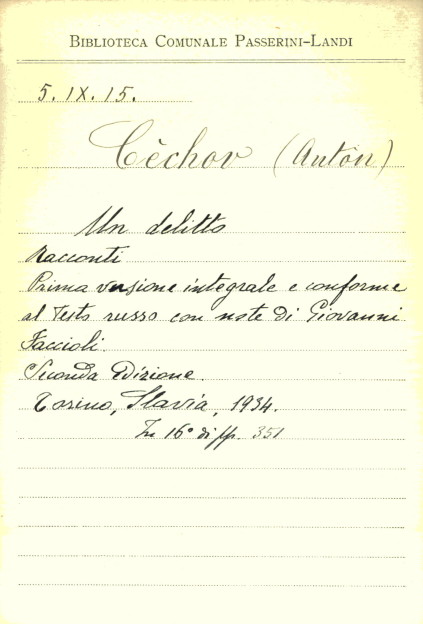 BIBLIOTECA COMUNALE PASSERINI-LANDI
5. IX. 15.
Cèchov (Antòn)
Un delitto
Racconti
Prima versione integrale e conforme
al testo russo con note di Giovanni
Faccioli.
Seconda Edizione.
Torino, Slavia, 1934.
In 16° di pp. 351